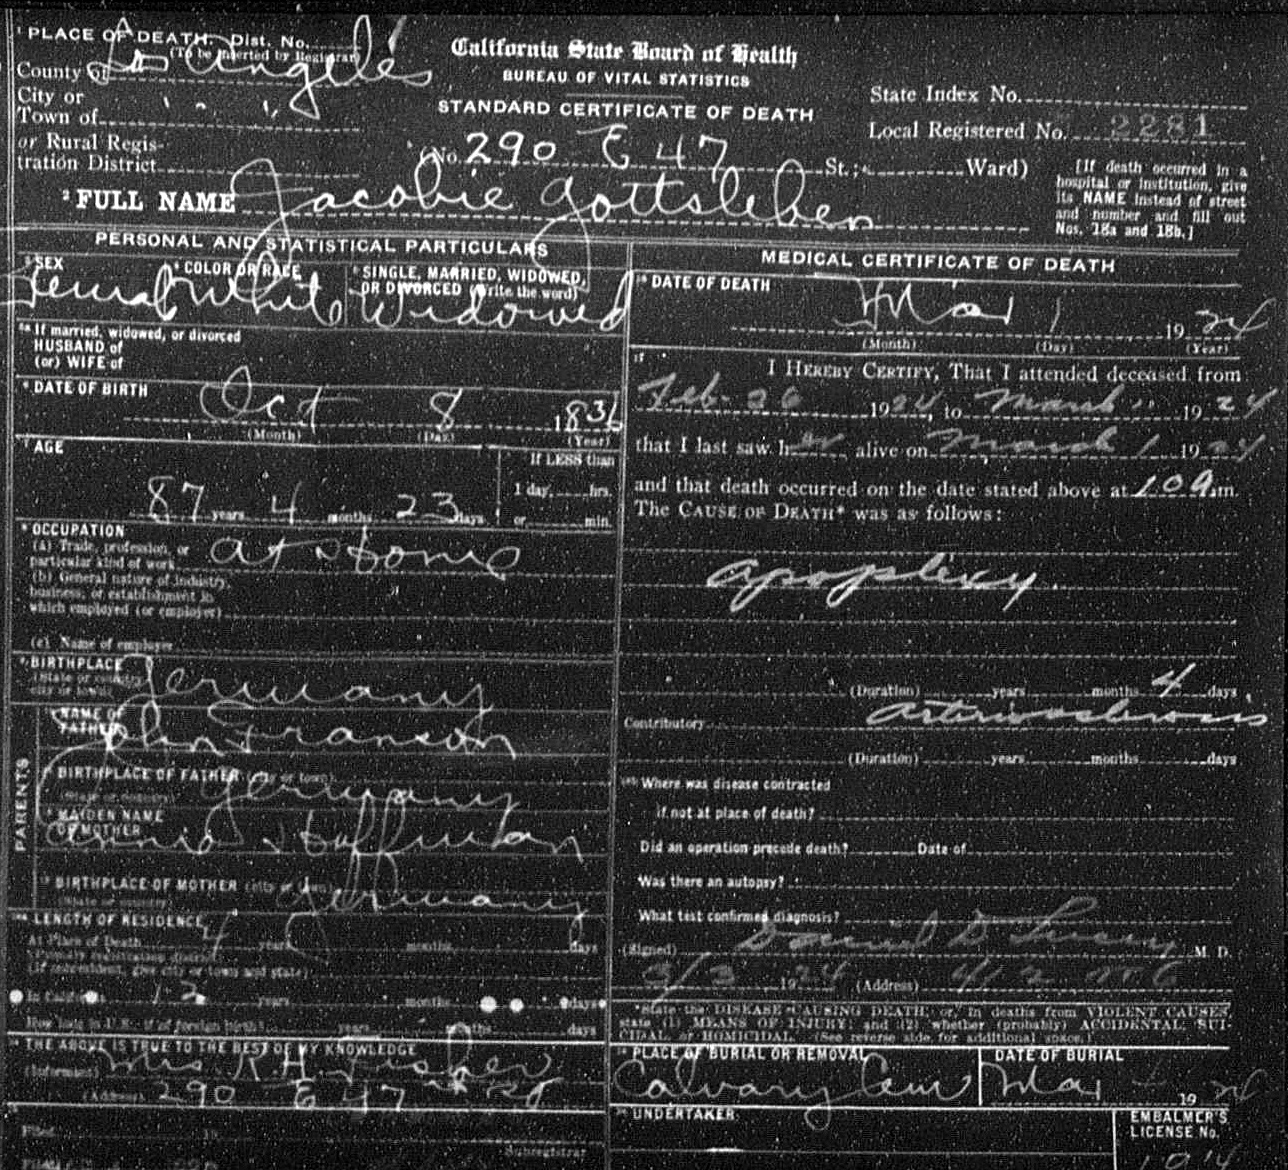 ¹ PLACE OF DEATH. Dist. No.
(To be inserted by Registrar)
County of Los Angeles
City or
Town of " "
or Rural Regis-
tration District
California State Board of Health
BUREAU OF VITAL STATISTICS
STANDARD CERTIFICATE OF DEATH
State Index No.
Local Registered No. 2281
(No. 290 E 47 St.; Ward)
[If death occurred in a
hospital or institution, give
its NAME instead of street
and number and fill out
Nos. 18a and 18b.]
² FULL NAME Jacobie Gottsleben
PERSONAL AND STATISTICAL PARTICULARS
³ SEX
Female
⁴ COLOR OR RACE
White
⁵ SINGLE, MARRIED, WIDOWED,
OR DIVORCED (Write the word)
Widowed
⁵ᵃ If married, widowed, or divorced
HUSBAND of
(or) WIFE of
⁶ DATE OF BIRTH
Oct 8 1836
(Month) (Day) (Year)
⁷ AGE
87 years 4 months 23 days
If LESS than
1 day, hrs.
or min.
⁸ OCCUPATION
(a) Trade, profession, or
particular kind of work At Home
(b) General nature of industry,
business, or establishment in
which employed (or employer)
(c) Name of employer
⁹ BIRTHPLACE
(State or country,
city or town) Germany
PARENTS
¹⁰ NAME OF
FATHER John Franson
¹¹ BIRTHPLACE OF FATHER (city or town)
(State or country) Germany
¹² MAIDEN NAME
OF MOTHER Annie Hoffman
¹³ BIRTHPLACE OF MOTHER (city or town)
(State or country) Germany
LENGTH OF RESIDENCE
At Place of Death years months days
(Primary registration district)
(If nonresident, give city or town and state)
In California 12 years months days
How long in U. S., if of foreign birth? years months days
¹⁴ THE ABOVE IS TRUE TO THE BEST OF MY KNOWLEDGE
(Informant) Mrs R. H. Fisher
(Address) 290 E 47th St
Filed 19
Subregistrar
MEDICAL CERTIFICATE OF DEATH
¹⁶ DATE OF DEATH
Mar 1 1924
(Month) (Day) (Year)
¹⁷ I HEREBY CERTIFY, That I attended deceased from
Feb. 26 1924, to March 1924
that I last saw her alive on March 1 1924
and that death occurred on the date stated above at 10 a.m.
The CAUSE OF DEATH* was as follows:
Apoplexy
(Duration) years months 4 days
Contributory Arteriosclerosis
(Duration) years months days
Where was disease contracted
if not at place of death?
Did an operation precede death? Date of
Was there an autopsy?
What test confirmed diagnosis?
(Signed) Daniel D M. D.
3/3 1924 (Address)
*State the DISEASE CAUSING DEATH; or, in deaths from VIOLENT CAUSES,
state (1) MEANS OF INJURY; and (2) whether (probably) ACCIDENTAL, SUI-
CIDAL, or HOMICIDAL. (See reverse side for additional space.)
¹⁹ PLACE OF BURIAL OR REMOVAL
Calvary Cem
DATE OF BURIAL
Mar 1924
²⁰ UNDERTAKER
EMBALMER'S
LICENSE No.